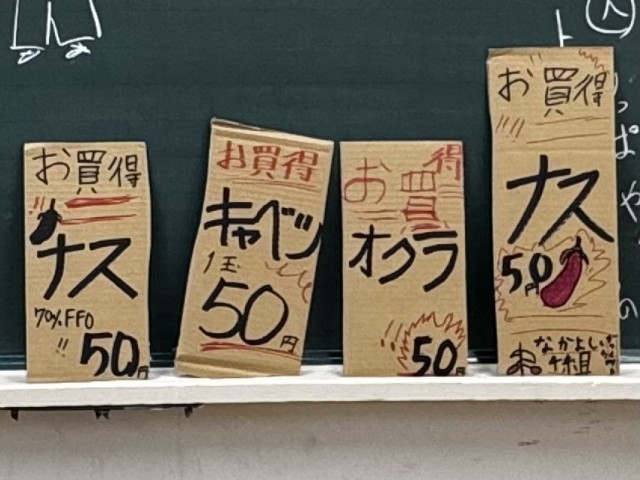 お買得
ナス
70%FFO
!!
50円
お買得
キャベツ
1玉
50円
お買得
オクラ
!!
50円
お買得
ナス
50円
なかよし